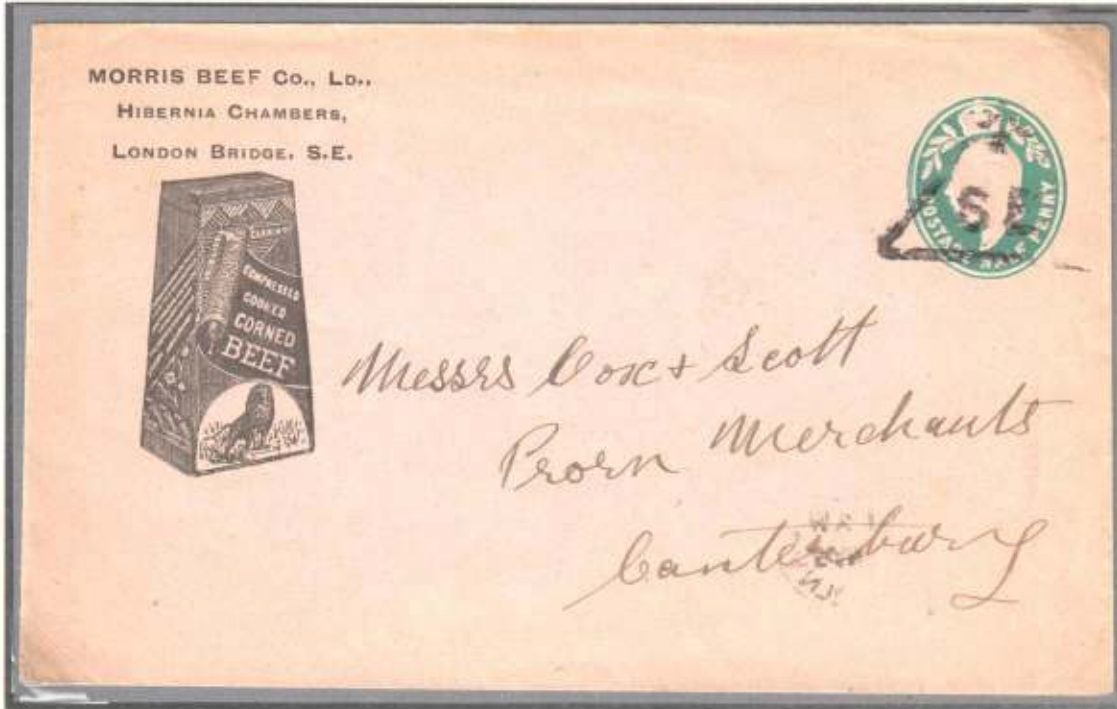 MORRIS BEEF Co., LD.,
HIBERNIA CHAMBERS,
LONDON BRIDGE. S.E.
COMPRESSED
COOKED
CORNED
BEEF
POSTAGE HALF PENNY
S E
Messrs Cox & Scott
Provn Merchants
Canterbury